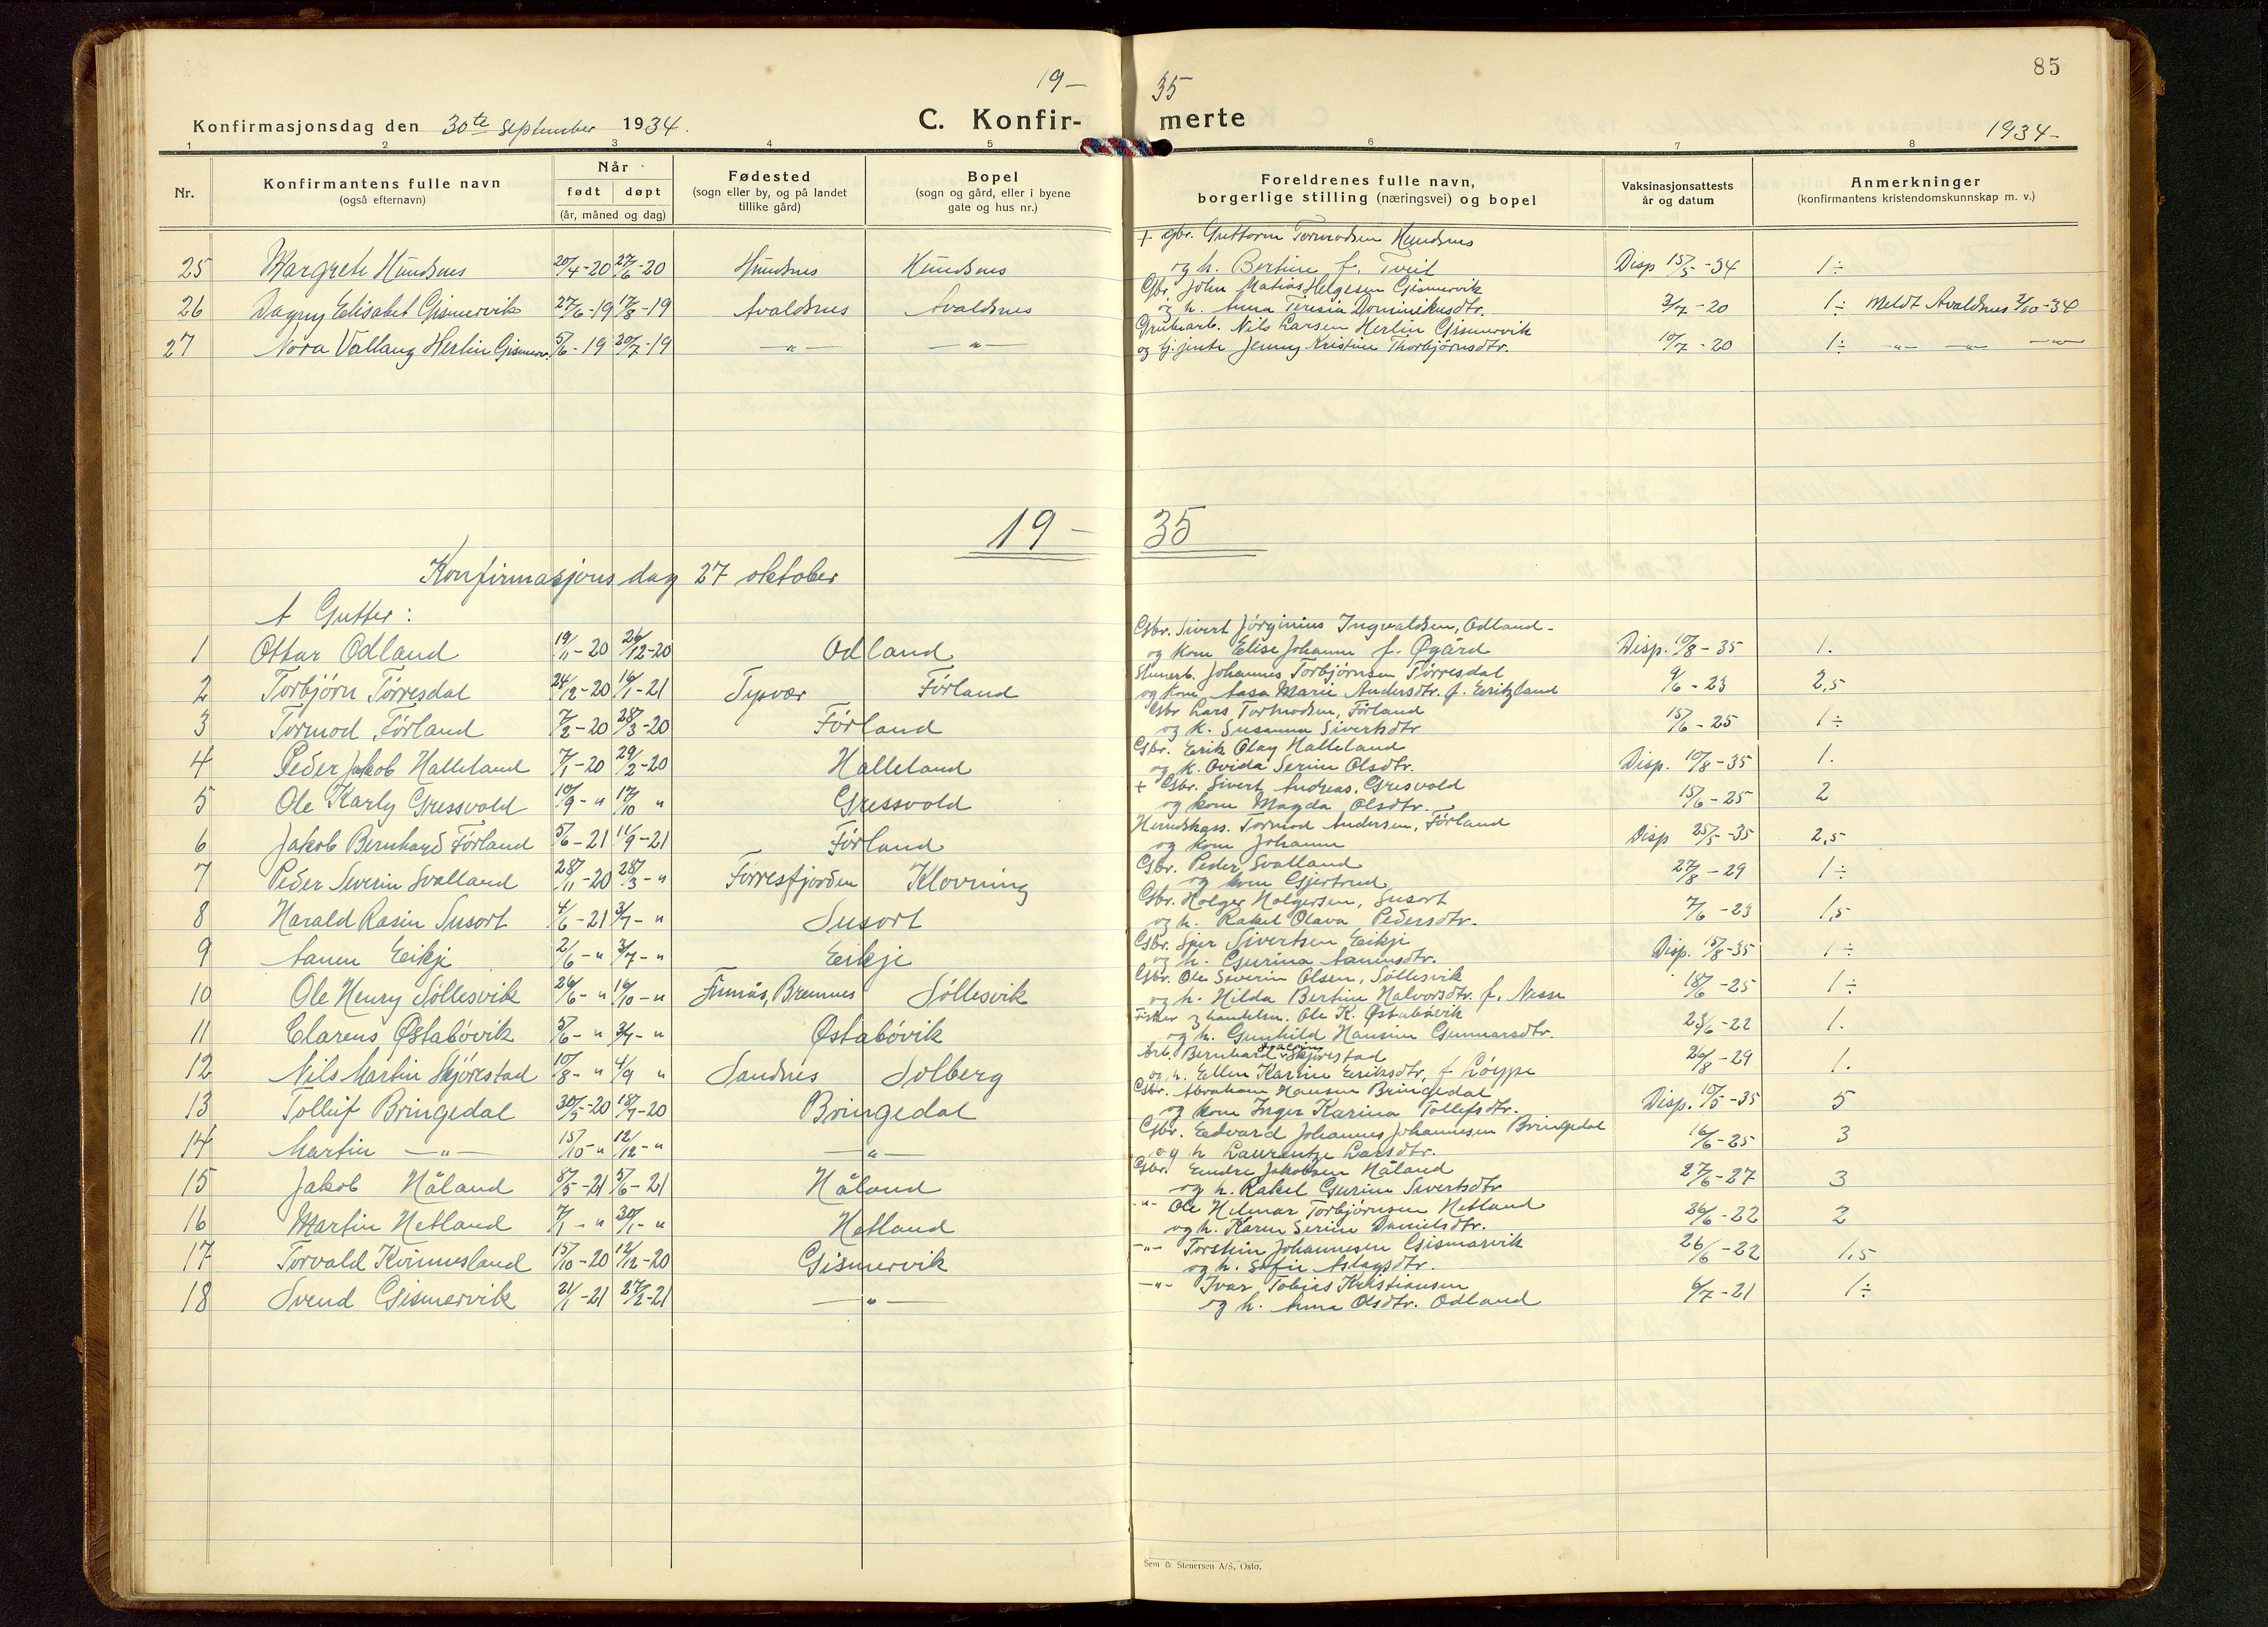 85
19 – 35
Konfirmasjonsdag den 30te September 1934.
C. Konfirmerte
1934-
1 2 3 4 5 6 7 8
Nr. | Konfirmantens fulle navn (også efternavn) | Når født døpt (år, måned og dag) | Fødested (sogn eller by, og på landet tillike gård) | Bopel (sogn og gård, eller i byene gate og hus nr.) | Foreldrenes fulle navn, borgerlige stilling (næringsvei) og bopel | Vaksinasjonsattests år og datum | Anmerkninger (konfirmantens kristendomskunnskap m. v.)
25 Margrete Hundsnes 20/4-20 27/6-20 Hundsnes Hundsnes + gbr. Guttorm Tormodsen Hundsnes og h. Bertine f. Tveit Disp 15/5-34 1÷
26 Dagny Elisabet Gismervik 27/6-19 17/8-19 Avaldsnes Avaldsnes Gbr. John Matias Helgesen Gismervik og h. Anna Teresia Dominikusdtr. 3/7-20 1÷ Meldt Avaldsnes 2/10-34
27 Nora Vallang Herlin Gismerv. 5/6-19 20/7-19 —"— —"— Grubearb. Nils Larsen Herlin Gismervik og tj.jente Jenny Kristine Thorbjørnsdtr. 10/7-20 1÷ —"— —"— —"—
19 – 35
Konfirmasjonsdag 27 oktober
A Gutter:
1 Ottar Odland 19/11-20 26/12-20 Odland Gbr. Sivert Jørginius Ingvaldsen, Odland- og kone Elise Johanne f. Øgård Disp. 10/8-35 1.
2 Torbjørn Tørresdal 24/12-20 16/1-21 Tysvær Førland Johannes Torbjørnsen Tørresdal og kone Aasa Marie Andersdtr. f. 9/6-23 2,5
3 Tormod Førland 7/2-20 28/3-20 Førland Gbr Lars Tormodsen, Førland og k. Susanna Sivertsdtr 15/6-25 1÷
4 Peder Jakob Halleland 7/1-20 29/2-20 Halleland Gbr. Erik Olay Halleland og k. Ovida Serine Olsdtr. Disp. 10/8-35 1.
5 Ole Karly Gressvold 10/9-" 17/10 " Gressvold + Gbr. Sivert Andreas, Gresvold og kone Magda Olsdtr. 15/6-25 2
6 Jakob Bernhard Førland 5/6-21 11/9-21 Førland Tormod Andersen, Førland og kone Johanne Disp 25/5-35 2,5
7 Peder Severin Svalland 28/11-20 28/3-" Førresfjorden Klovning Gbr. Peder Svalland og kone Gjertrud 27/8-29 1÷
8 Harald Rasin Susort 4/6-21 3/7-" Susort Gbr. Holger Holgersen, Susort og h. Rakel Olava Pedersdtr. 7/6-23 1,5
9 Aanen Eikje 2/6-" 3/7-" Eikje Gbr. Sjur Sivertsen Eikje og h. Gurina Aanensdtr. Disp. 15/8-35 1÷
10 Ole Henry Søllesvik 26/6-" 16/10-" Finnås, Bremnes Søllesvik Gbr. Ole Severin Olsen, Søllesvik og h. Hilda Bertine Halvorsdtr. f. Nesse 18/6-25 1÷
11 Clarens Østabøvik 5/6-" 3/7-" Østabøvik Fisker & handelsm. Ole K. Østabøvik og h. Gunhild Hansine Gunnarsdtr. 23/6-22 1.
12 Nils Martin Skjørestad 10/8-" 4/9 " Sandnes Solberg Arb. Bernhard Skjørestad og h. Ellen Karine Eriksdtr. f. Løype 26/8-29 1.
13 Tollif Bringedal 30/5-20 18/7-20 Bringedal Gbr. Abraham Hansen Bringedal og kone Inger Karina Tollefsdtr. Disp. 10/5-35 5
14 Martin —"— 15/10-" 12/12-" —"— Gbr. Eedvard Johannes Johannesen Bringedal og h Laurentze Larsdtr. 16/6-25 3
15 Jakob Håland 8/5-21 5/6-21 Håland Gbr. Endre Jakobsen Håland og h. Rakel Gurine Sivertsdtr 27/6-27 3
16 Martin Hetland 7/1-" 30/1-" Hetland -"- Ole Helmar Torbjørnsen Hetland og h. Karen Serine Danielsdtr. 26/6-22 2
17 Torvald Kvinnesland 15/10-20 12/12-20 Gismervik -"- Torstein Johannesen Gismarvik og h. Sofie Aslagsdtr. 26/6-22 1,5
18 Svend Gismervik 21/1-21 27/2-21 —"— -"- Ivar Tobias Kristiansen og h. Anna Olsdtr. Odland 6/7-21 1÷
Sem & Stenersen A/S, Oslo.